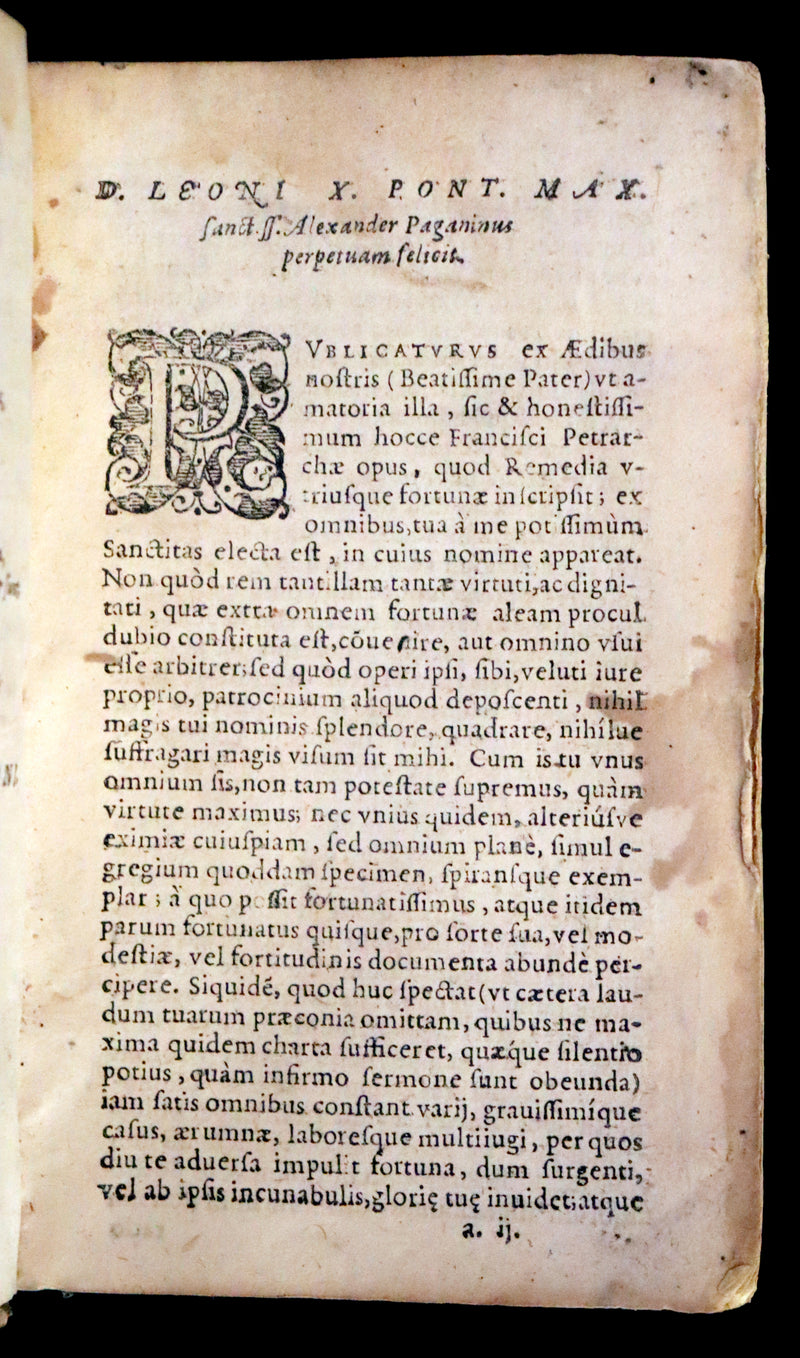 D. LEONI X. PONT. MAX.
ſanct.ſſ. Alexander Paganinus
perpetuam felicit.
PVBLICATVRVS ex Ædibus
noſtris (Beatiſſime Pater) vt a-
matoria illa, ſic & honeſtiſſi-
mum hocce Franciſci Petrar-
chæ opus, quod Remedia v-
triuſque fortunæ inſcripſit; ex
omnibus, tua à me potiſſimùm
Sanctitas electa eſt, in cuius nomine appareat.
Non quòd rem tantillam tantæ virtuti, ac digni-
tati, quæ extra omnem fortunæ aleam procul
dubio conſtituta eſt, cōuenire, aut omnino vſui
eſſe arbitrer; ſed quòd operi ipſi, ſibi, veluti iure
proprio, patrocinium aliquod depoſcenti, nihil
magis tui nominis ſplendore, quadrare, nihílue
ſuffragari magis viſum ſit mihi. Cum is tu vnus
omnium ſis, non tam poteſtate ſupremus, quàm
virtute maximus; nec vnius quidem, alteriúſve
eximiæ cuiuſpiam, ſed omnium planè, ſimul e-
gregium quoddam ſpecimen, ſpiranſque exem-
plar; à quo poſſit fortunatiſſimus, atque itidem
parum fortunatus quiſque, pro ſorte ſua, vel mo-
deſtiæ, vel fortitudinis documenta abundè per-
cipere. Siquidē, quod huc ſpectat (vt cætera lau-
dum tuarum præconia omittam, quibus ne ma-
xima quidem charta ſufficeret, quæque ſilentio
potius, quàm infirmo ſermone ſunt obeunda)
iam ſatis omnibus conſtant varij, grauiſſimíque
caſus, ærumnæ, laboreſque multiiugi, per quos
diu te aduerſa impulit fortuna, dum ſurgenti,
vel ab ipſis incunabulis, glorię tuę inuidet; atque
a. ij.